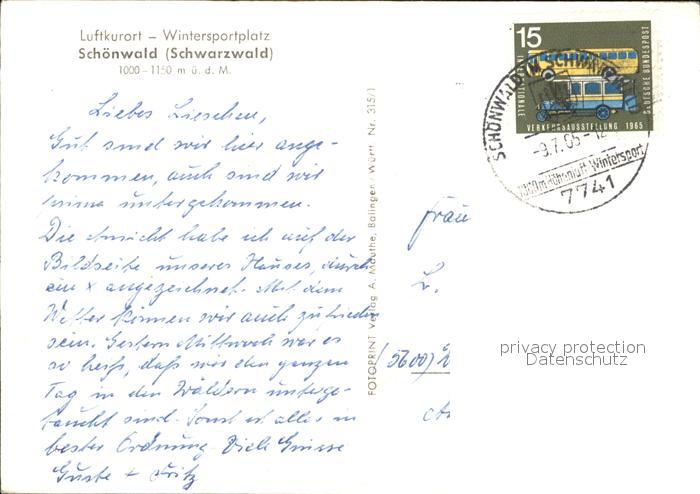 Luftkurort – Wintersportplatz
Schönwald (Schwarzwald)
1000–1150 m ü. d. M.
Liebes Lieschen,
Gut sind wir hier ange-
kommen, auch sind wir
prima untergekommen.
Die Ansicht habe ich auf der
Bildseite unseres Hauses, durch
ein x angezeichnet. Mit dem
Wetter können wir auch zufrieden
sein. Gestern Mittwoch war es
so heiß, daß wir den ganzen
Tag in den Wäldern unterge-
taucht sind. Sonst ist alles in
bester Ordnung. Viele Grüsse
Guste + Fritz
FOTOPRINT Verlag A. Mauthe, Balingen/Württ. Nr. 315/1
15
DEUTSCHE BUNDESPOST
VERKEHRSAUSSTELLUNG 1965
SCHÖNWALD IM SCHWARZW
-9.7.65-12
Höhenluft-Wintersport
7741
Frau
L.
(5600)
privacy protection
Datenschutz